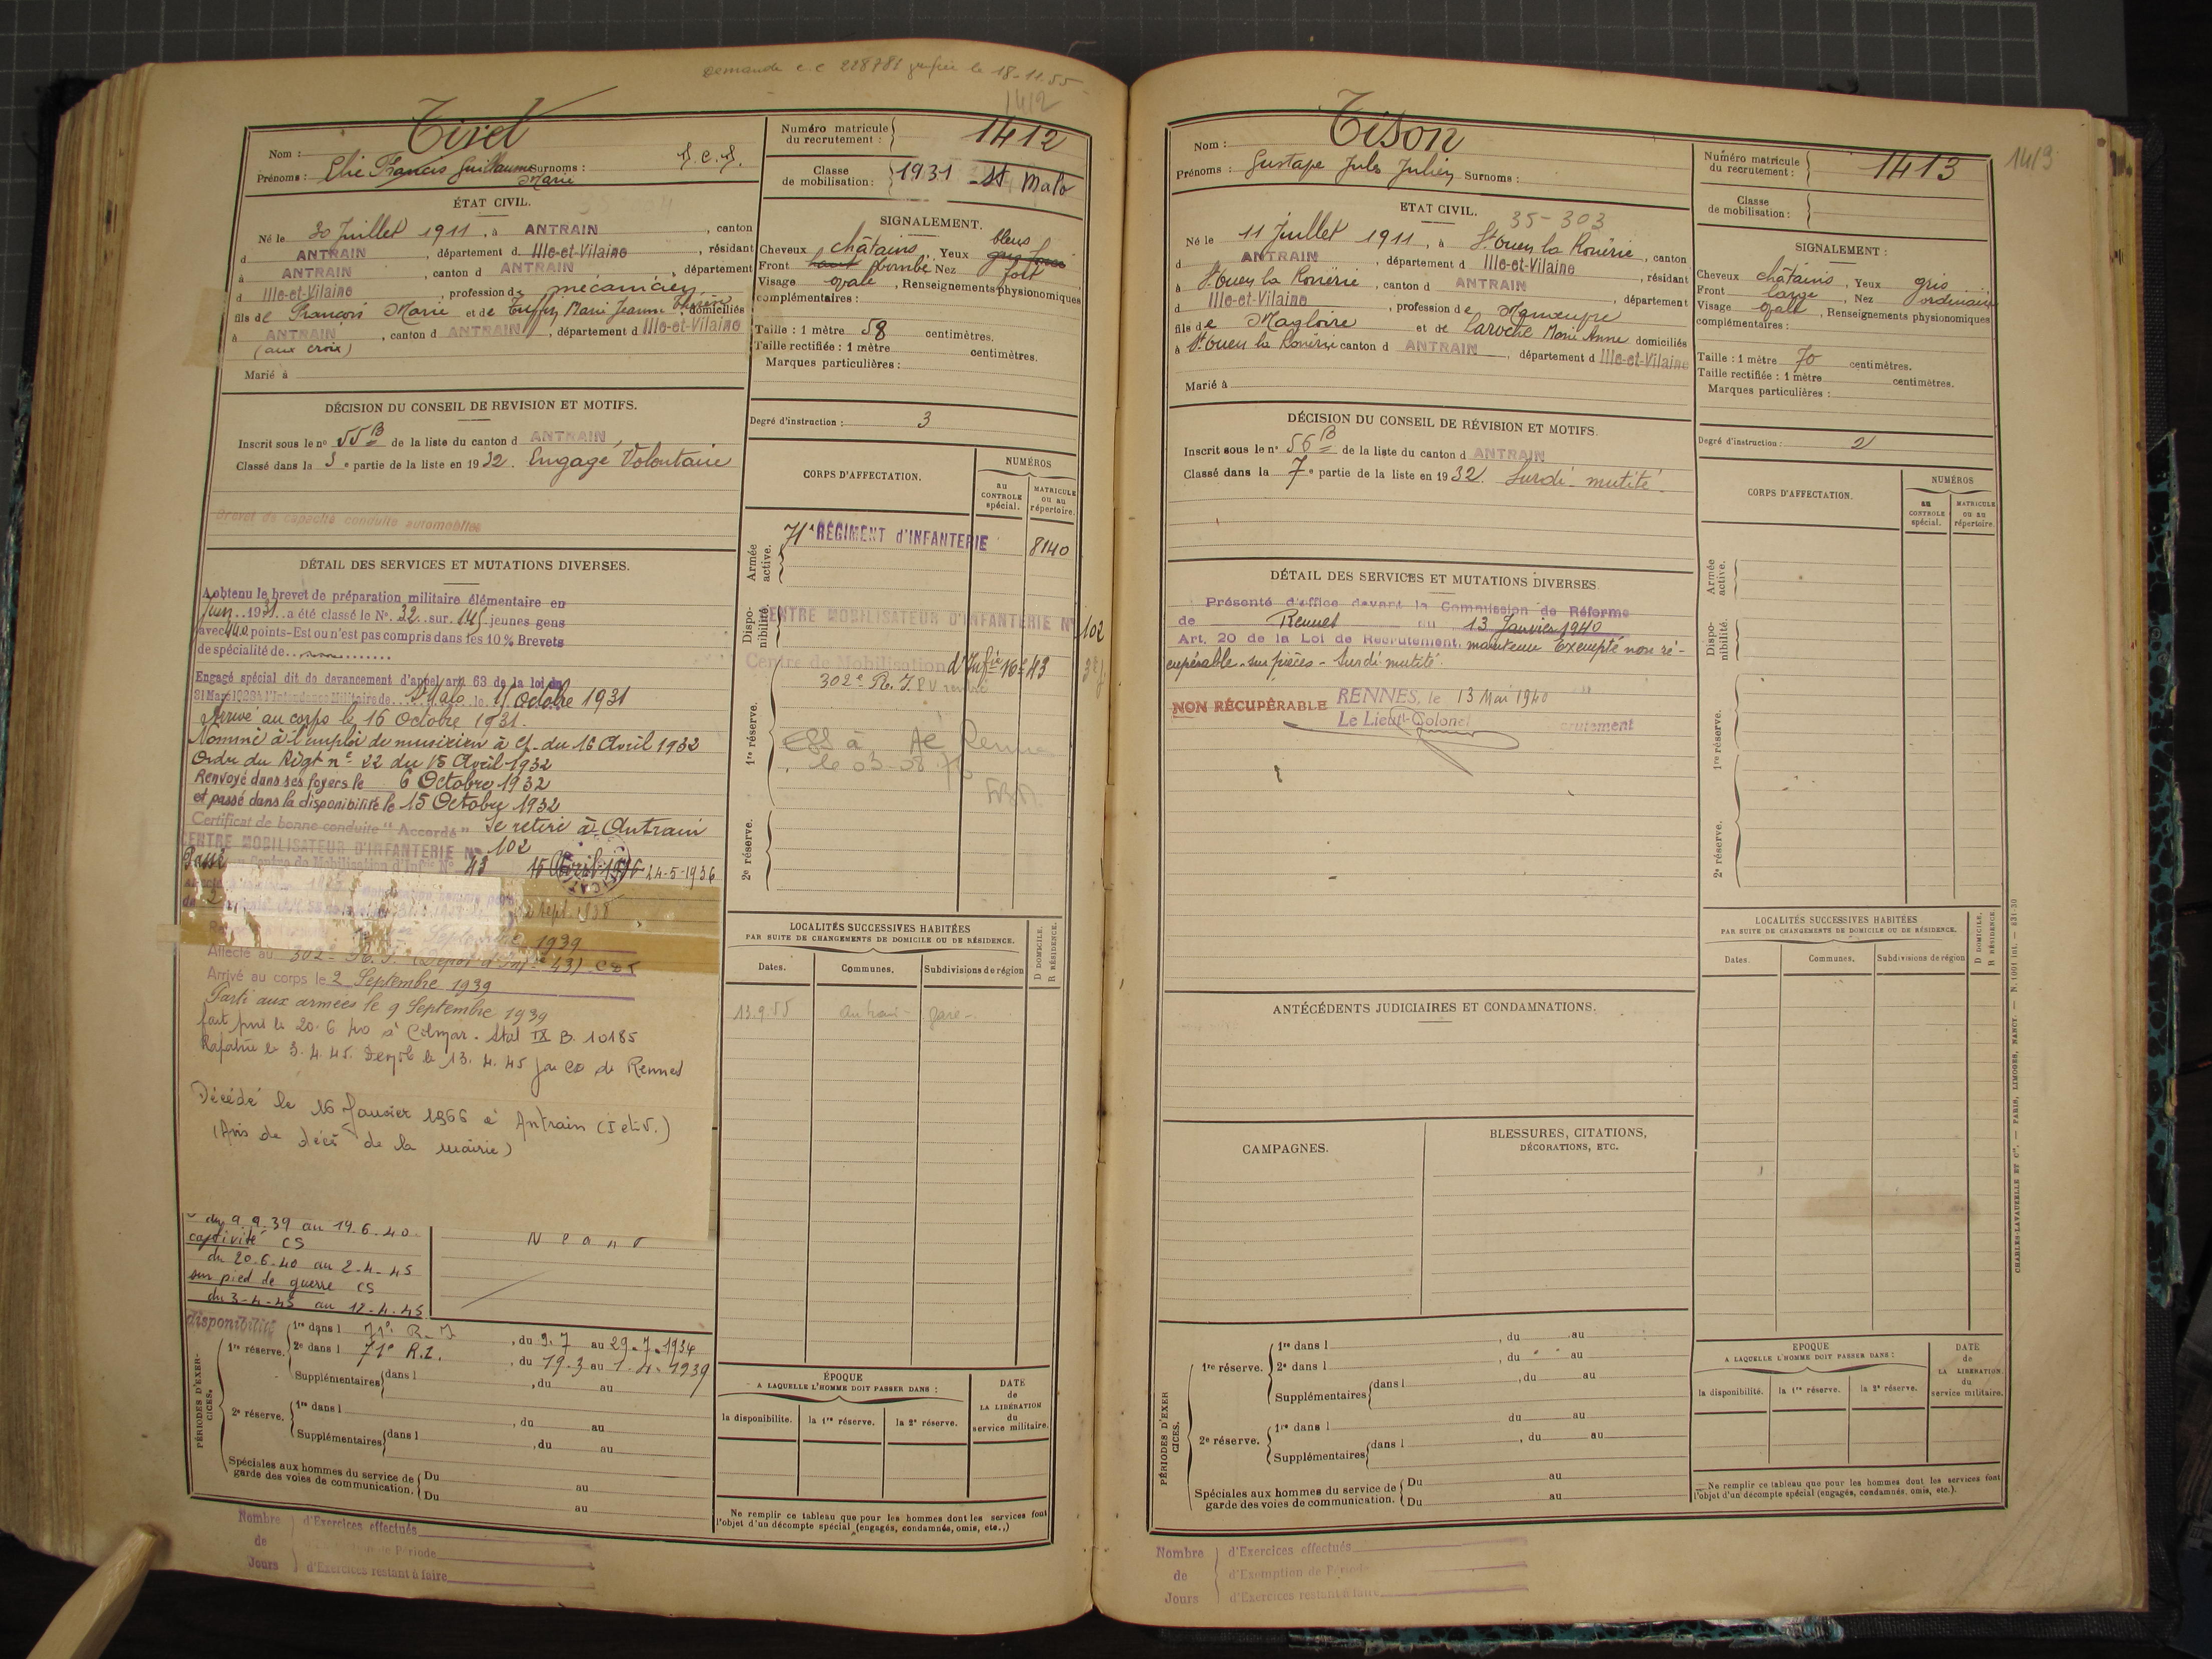 Demande c.c 228781 le 18.11.55
1412
Nom : Tisel
Prénoms : Elie Francis Guillaume Marie Surnoms : S.C.S.
Numéro matricule du recrutement : 1412
Classe de mobilisation : 1931 St Malo
ÉTAT CIVIL.
Né le 30 Juillet 1911, à ANTRAIN, canton
d ANTRAIN, département d Ille-et-Vilaine, résidant
à ANTRAIN, canton d ANTRAIN, département
d Ille-et-Vilaine, profession de mécanicien
fils de François Marie et de Tuffin Marie Jeanne Thérèse, domiciliés
à ANTRAIN, canton d ANTRAIN, département d Ille-et-Vilaine
(aux croix)
Marié à
SIGNALEMENT.
Cheveux châtains, Yeux bleus
Front haut bombé Nez fort
Visage ovale, Renseignements physionomiques
complémentaires :
Taille : 1 mètre 58 centimètres.
Taille rectifiée : 1 mètre centimètres.
Marques particulières :
DÉCISION DU CONSEIL DE REVISION ET MOTIFS.
Inscrit sous le n° 55 B de la liste du canton d ANTRAIN
Classé dans la 3e partie de la liste en 1932. Engagé Volontaire
Brevet de capacité conduite automobiles
Degré d'instruction : 3
CORPS D'AFFECTATION.
NUMÉROS
au CONTROLE spécial.
MATRICULE ou au répertoire.
Armée active.
71e RÉGIMENT d'INFANTERIE 8140
Disponibilité.
CENTRE MOBILISATEUR D'INFANTERIE N° 102
Centre de Mobilisation d'Infie 16e 43
1re réserve.
302e R.I.
2e réserve.
DÉTAIL DES SERVICES ET MUTATIONS DIVERSES.
A obtenu le brevet de préparation militaire élémentaire en
Juin 1931 a été classé le N° 32 sur 145 jeunes gens
avec 440 points-Est ou n'est pas compris dans les 10 % Brevets
de spécialité de
Engagé spécial dit de devancement d'appel art 63 de la loi du
31 Mars 1928 à l'Intendance Militaire de St Malo le 15 Octobre 1931
Arrivé au corps le 16 Octobre 1931.
Nommé à l'emploi de musicien à cf. du 16 Avril 1932
Ordre du Régt n° 22 du 15 Avril 1932
Renvoyé dans ses foyers le 6 Octobre 1932
et passé dans la disponibilité le 15 Octobre 1932
Certificat de bonne conduite "Accordé" Se retire à Antrain
CENTRE MOBILISATEUR D'INFANTERIE N° 102
Passé au Centre de Mobilisation d'Infie N° 43 15 Avril 1936 24-5-1936
Septembre 1939
Affecté au 302e R.I. (Dépôt d'Inf. 43)
Arrivé au corps le 2 Septembre 1939
Parti aux armées le 9 Septembre 1939
fait pris le 20.6.40 à Colmar. Stal IX B. 10185
Rapatrié le 3.4.45. Démob le 13.4.45 par CD de Rennes
Décédé le 16 Janvier 1966 à Antrain (I et V.)
(Avis de décès de la mairie)
du 9.9.39 au 19.6.40
captivité CS
du 20.6.40 au 2-4-45
sur pied de guerre CS
du 3-4-45 au 12.4.45
Néant
LOCALITÉS SUCCESSIVES HABITÉES
PAR SUITE DE CHANGEMENTS DE DOMICILE OU DE RÉSIDENCE.
D DOMICILE. R RÉSIDENCE.
Dates. Communes. Subdivisions de région
13.9.55 Antrain gare
PÉRIODES D'EXERCICES.
disponibilité
1re réserve.
1re dans l 71e R.I., du 9.7 au 29.7.1934
2e dans l 71e R.I., du 19.3 au 1.4.1939
Supplémentaires dans l , du au
2e réserve.
1re dans l , du au
Supplémentaires dans l , du au
Spéciales aux hommes du service de garde des voies de communication. Du au
Du au
ÉPOQUE
A LAQUELLE L'HOMME DOIT PASSER DANS :
la disponibilité. la 1re réserve. la 2e réserve.
DATE de LA LIBÉRATION du service militaire.
Ne remplir ce tableau que pour les hommes dont les services font
l'objet d'un décompte spécial (engagés, condamnés, omis, etc..)
Nombre de Jours
d'Exercices effectués
d'Exemption de Période
d'Exercices restant à faire
1413
Nom : Tison
Prénoms : Gustave Jules Julien Surnoms :
Numéro matricule du recrutement : 1413
Classe de mobilisation :
ETAT CIVIL. 35-303
Né le 11 Juillet 1911, à St Ouen la Rouërie, canton
d ANTRAIN, département d Ille-et-Vilaine, résidant
à St Ouen la Rouërie, canton d ANTRAIN, département
d Ille-et-Vilaine, profession de Manœuvre
fils de Magloire et de Laroche Marie Anne domiciliés
à St Ouen la Rouërie canton d ANTRAIN, département d Ille-et-Vilaine
Marié à
SIGNALEMENT :
Cheveux châtains, Yeux gris
Front large, Nez ordinaire
Visage ovale, Renseignements physionomiques
complémentaires :
Taille : 1 mètre 70 centimètres.
Taille rectifiée : 1 mètre centimètres.
Marques particulières :
DÉCISION DU CONSEIL DE RÉVISION ET MOTIFS.
Inscrit sous le n° 56 B de la liste du canton d ANTRAIN
Classé dans la 7e partie de la liste en 1932. Surdi-mutité
Degré d'instruction : 2
CORPS D'AFFECTATION.
NUMÉROS
au CONTROLE spécial.
MATRICULE ou au répertoire.
Armée active.
Disponibilité.
1re réserve.
2e réserve.
DÉTAIL DES SERVICES ET MUTATIONS DIVERSES.
Présenté d'office devant la Commission de Réforme
de Rennes du 13 Janvier 1940
Art. 20 de la Loi de Recrutement, maintenu Exempté non ré-
cupérable sur pièces - Surdi-mutité.
NON RÉCUPÉRABLE RENNES, le 13 Mai 1940
Le Lieut-Colonel
ANTÉCÉDENTS JUDICIAIRES ET CONDAMNATIONS.
CAMPAGNES.
BLESSURES, CITATIONS, DÉCORATIONS, ETC.
LOCALITÉS SUCCESSIVES HABITÉES
PAR SUITE DE CHANGEMENTS DE DOMICILE OU DE RÉSIDENCE.
D DOMICILE. R RÉSIDENCE.
Dates. Communes. Subdivisions de région
PÉRIODES D'EXERCICES.
1re réserve.
1re dans l , du au
2e dans l , du au
Supplémentaires dans l , du au
2e réserve.
1re dans l du au
Supplémentaires dans l , du au
Spéciales aux hommes du service de garde des voies de communication. Du au
Du au
EPOQUE
A LAQUELLE L'HOMME DOIT PASSER DANS :
la disponibilité. la 1re réserve. la 2e réserve.
DATE de LA LIBÉRATION du service militaire.
Ne remplir ce tableau que pour les hommes dont les services font
l'objet d'un décompte spécial (engagés, condamnés, omis, etc.).
CHARLES-LAVAUZELLE ET Cie. — PARIS, LIMOGES, NANCY.
Nombre de Jours
d'Exercices effectués
d'Exemption de Période
d'Exercices restant à faire